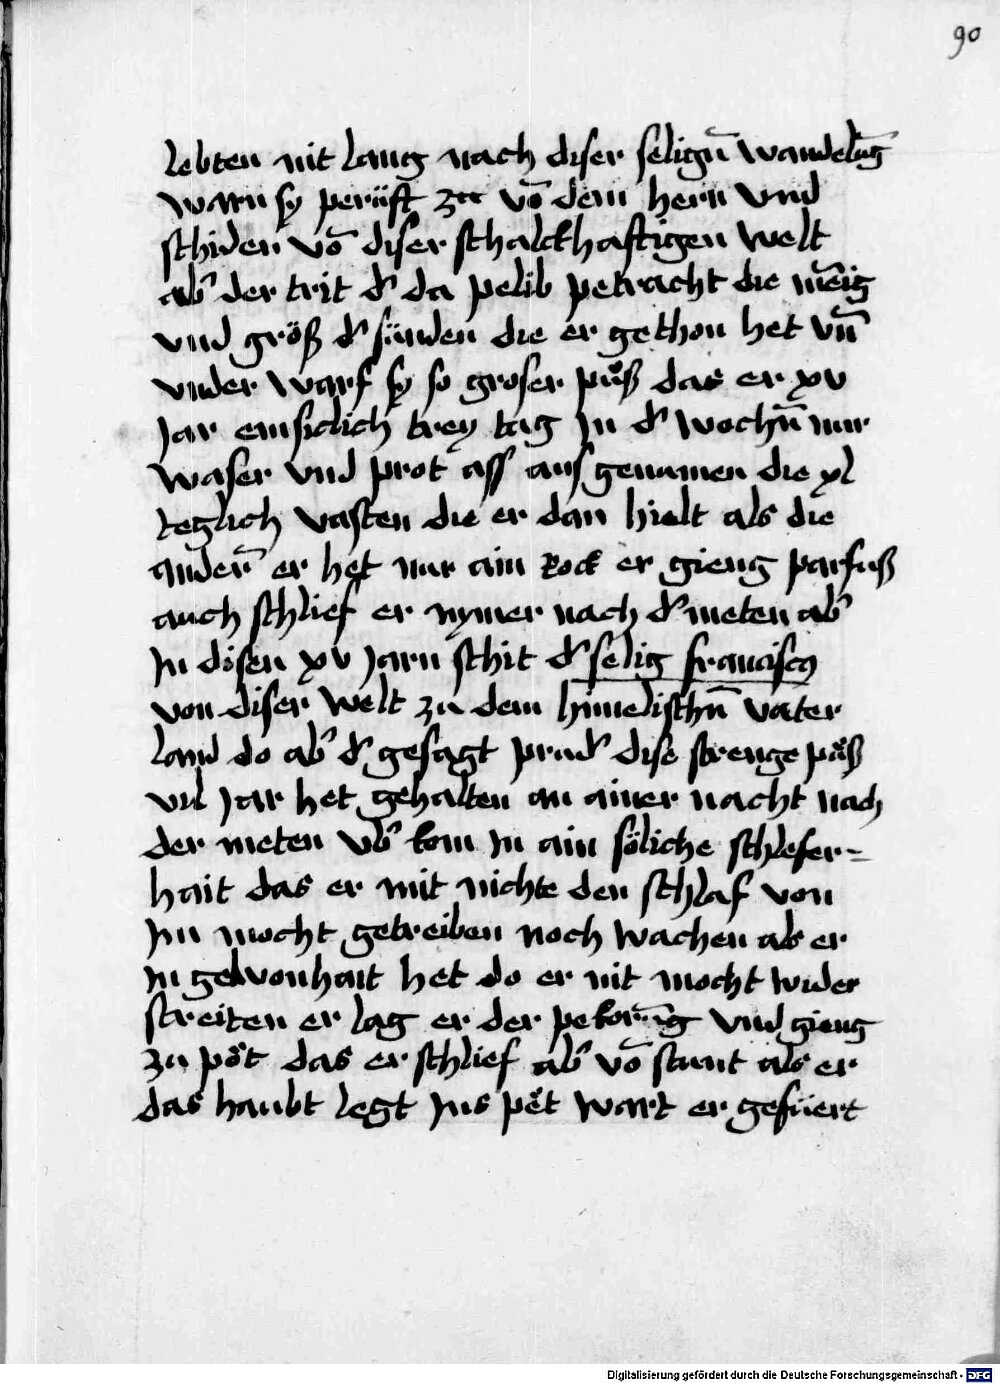 90
lebten nit lang nach diser seligñ wandelūg
warn sy perüft zu vō dem hern und
schiden vō diser schalckhaftigen welt
ab᷑ der trit d᷑ da pelib petracht die mēig
und größ d᷑ sünden die er gethon het vn̄
under warf sy so groser půß das er xv
Jar emsiclich trey tag Jn d᷑ wochn̄ nur
waser und prot ass aus genumen die xl
teglich vasten die er dan hielt als die
andern̄ er het nur ain Rock er gieng parfuß
auch schlief er nymer nach d᷑ meten ab᷑
Jn disen xv Jarn schit d᷑ selig franciscꝯ
von diser welt zu dem himelischn̄ vater
land do ab᷑ d᷑ gesagt prud᷑ dise strenge půß
vil Jar het gehalten an ainer nacht nach
der meten vb᷑ kom Jn ain söliche schlefer=
hait das er mit nichte den schlaf von
Jm mocht getreiben noch wachen als er
Jn gewonhait het do er nit mocht wider
streiten er lag er der pekorūg und gieng
zu pöt das er schlief ab᷑ vō stunt als er
das haubt legt Jns pet wart er gefüert
Digitalisierung gefördert durch die Deutsche Forschungsgemeinschaft - DFG